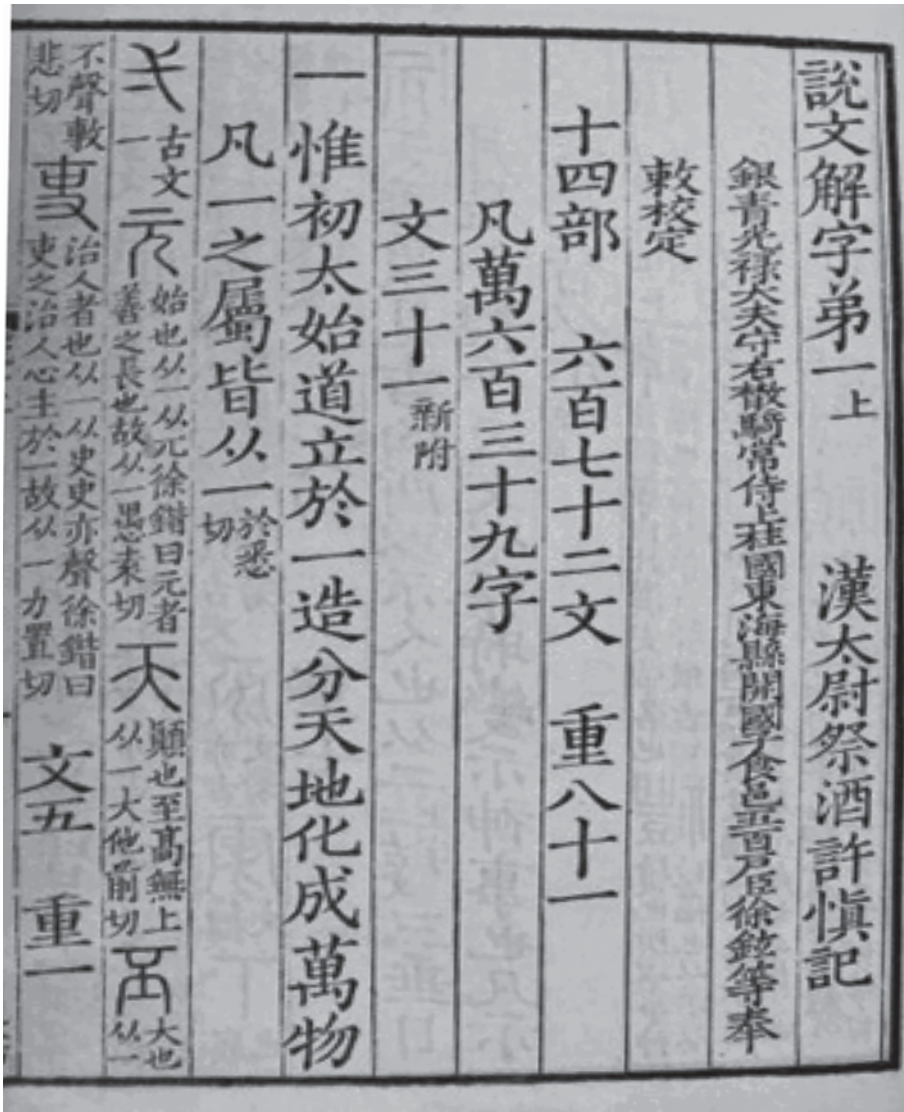 說文解字弟一上 漢太尉祭酒許慎記
銀青光祿大夫守右散騎常侍上柱國東海縣開國子食邑五百戶臣徐鉉等奉
敕校定
十四部 六百七十二文 重八十一
凡萬六百三十九字
文三十一新附
一 惟初太始道立於一造分天地化成萬物
凡一之屬皆从一於悉切
弌古文一 元始也从一从兀徐鍇曰元者善之長也故从一愚袁切 天顚也至高無上从一大他前切 丕大也从一
不聲敷悲切 吏治人者也从一从史史亦聲徐鍇曰吏之治人心主於一故从一力置切 文五 重一